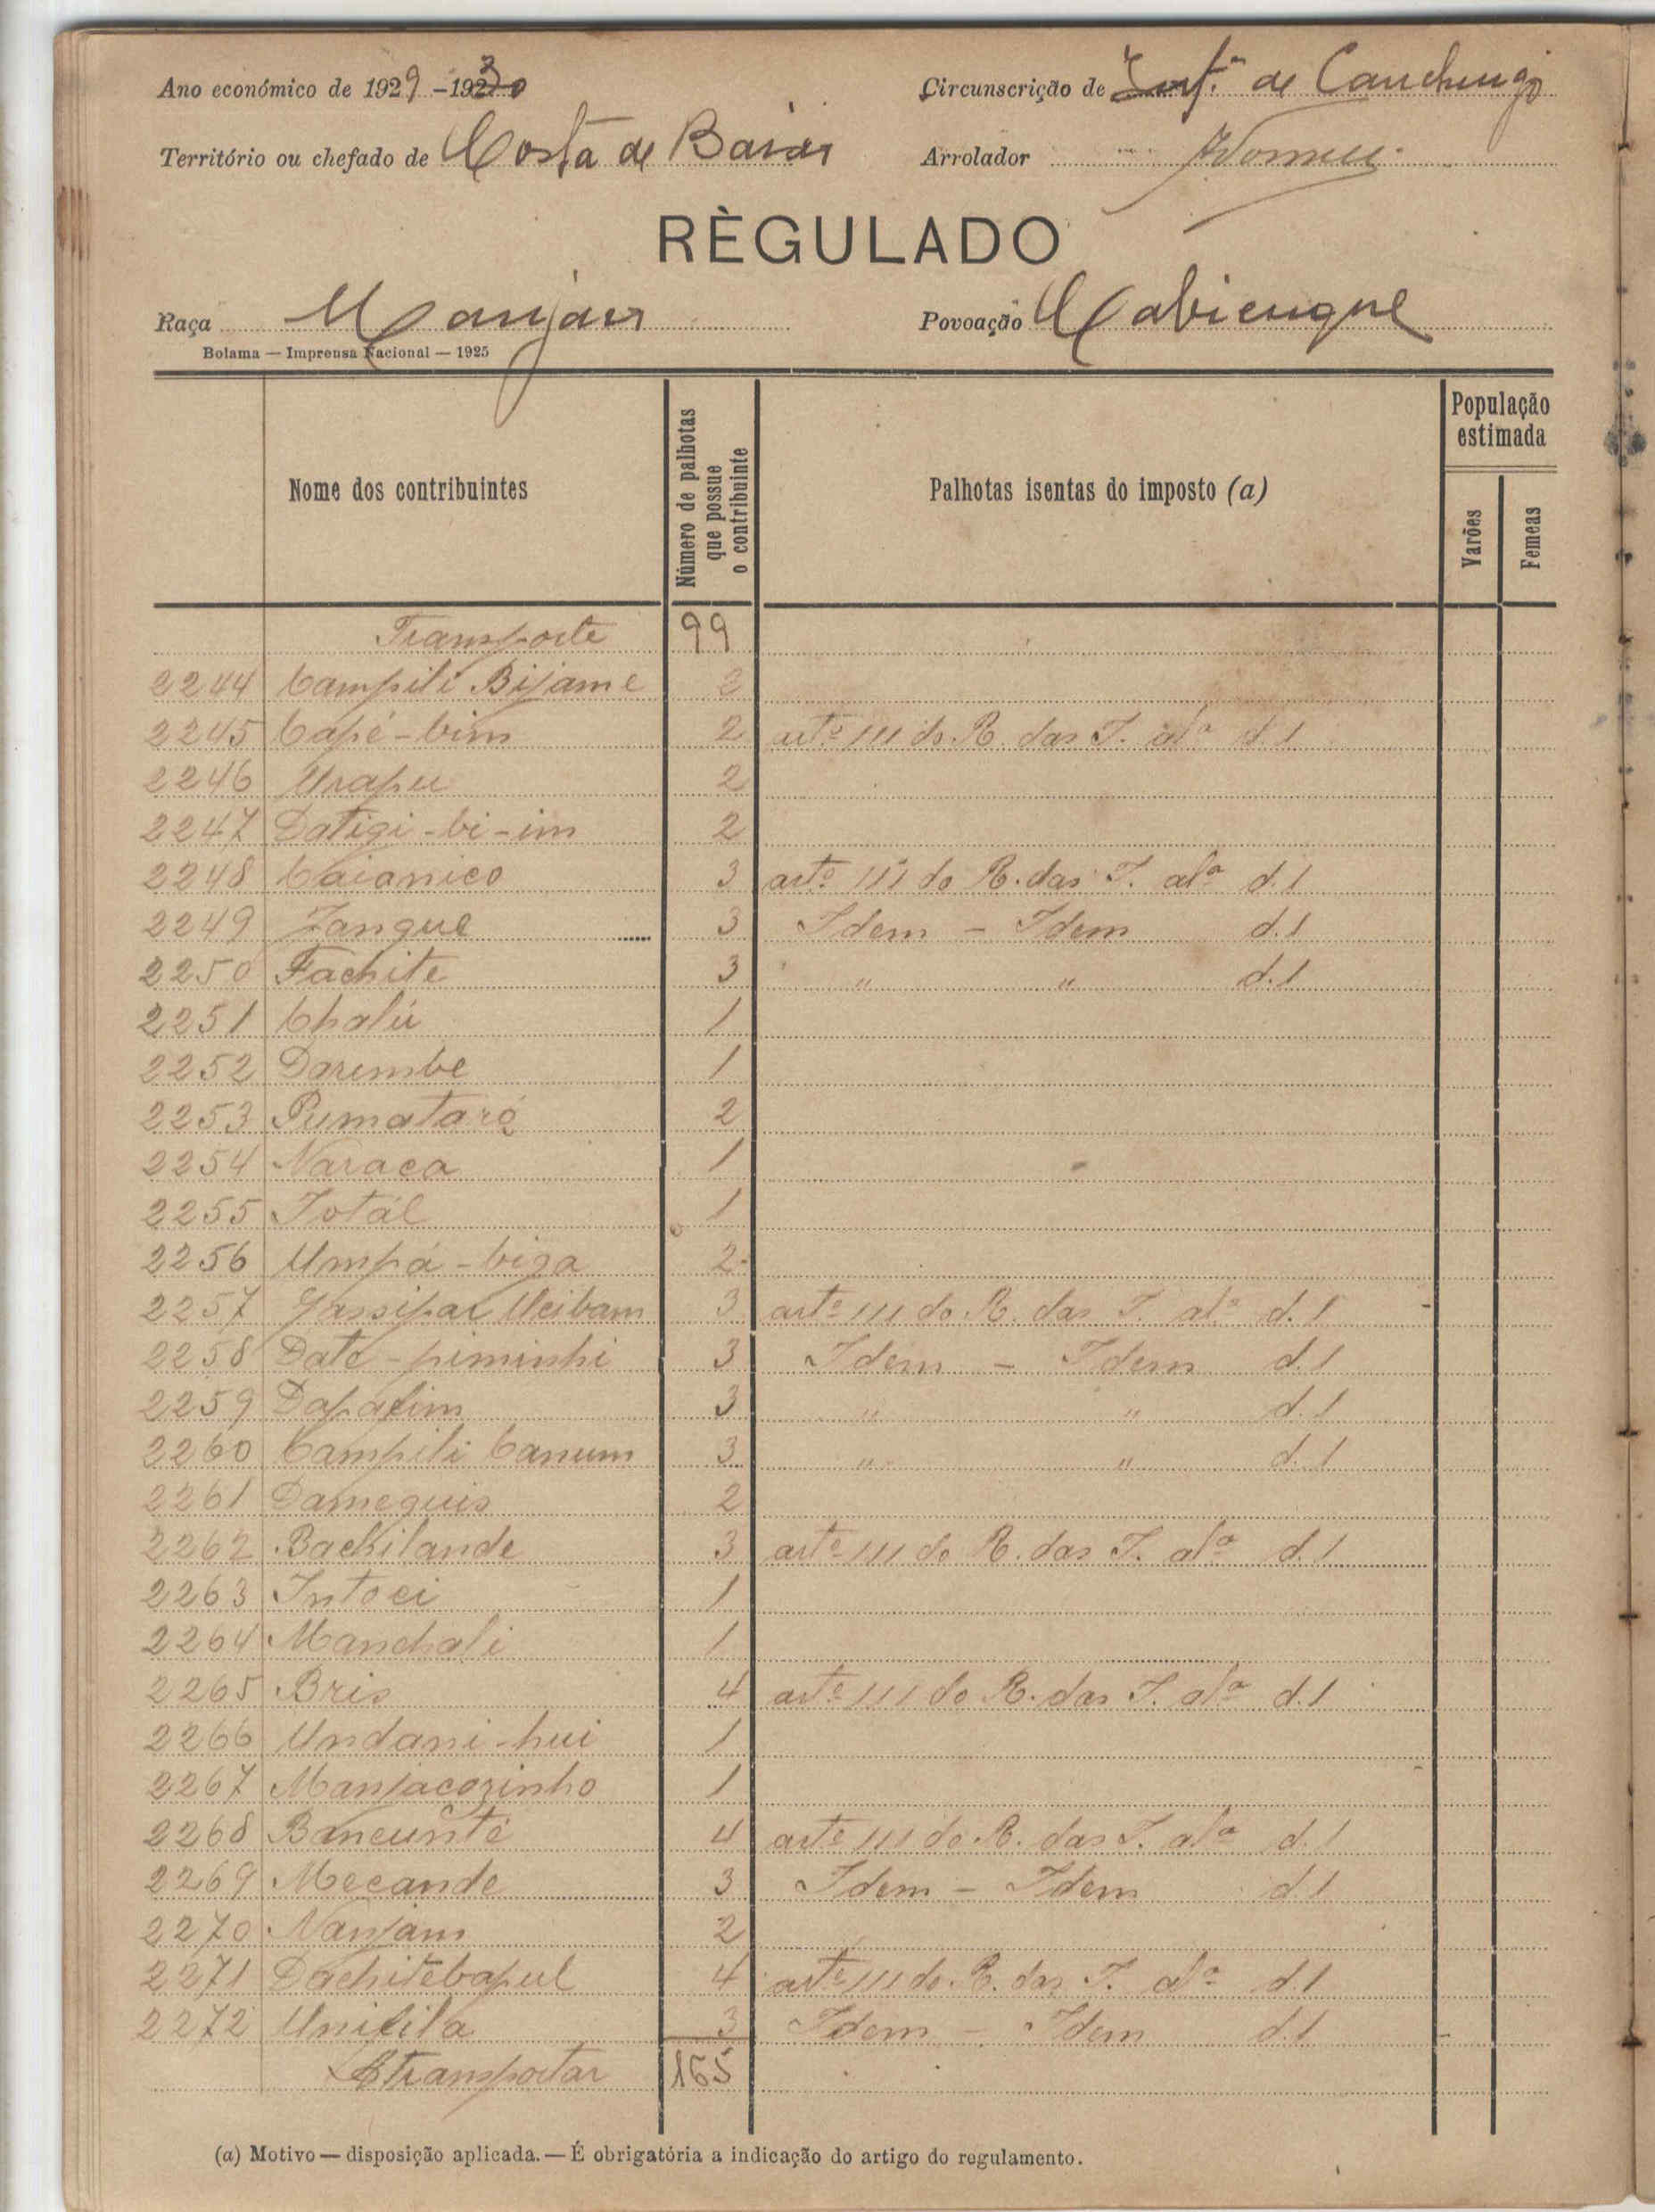 Ano económico de 1929 -1930
Circunscrição de de Canchungo
Território ou chefado de Costa de Baixo
Arrolador
RÈGULADO
Raça Manjaca
Povoação Cabienque
Bolama — Imprensa Nacional — 1925
Nome dos contribuintes
Número de palhotas que possue o contribuinte
Palhotas isentas do imposto (a)
População estimada
Varões
Femeas
Transporte 99
2244 Campili Bijame 2
2245 Capé-bim 2 artº 111 do R. das I. alª d.1
2246 Urapu 2
2247 Datigi-bi-im 2
2248 Caianico 3 artº 111 do R. das I. alª d.1
2249 Zangue 3 Idem - Idem d.1
2250 Fachite 3 " " d.1
2251 Chalú 1
2252 Darembe 1
2253 Pumataró 2
2254 Naraca 1
2255 Totál 1
2256 Umpá-biga 2
2257 Ucibam 3 artº 111 do R. das I. alª d.1
2258 Daté-piminhi 3 Idem - Idem d.1
2259 Dapatim 3 " " d.1
2260 Campili Canum 3 " " d.1
2261 Dameguis 2
2262 Backilande 3 artº 111 do R. das I. alª d.1
2263 Intoci 1
2264 Manchali 1
2265 Bris 4 artº 111 do R. das I. alª d.1
2266 Undani-hui 1
2267 Manjacozinho 1
2268 Bancunté 4 artº 111 do R. das I. alª d.1
2269 Mecande 3 Idem - Idem d.1
2270 Nanjam 2
2271 Dachitebapul 4 artº 111 do R. das I. alª d.1
2272 Unitila 3 Idem - Idem d.1
A transportar 165
(a) Motivo — disposição aplicada. — É obrigatória a indicação do artigo do regulamento.